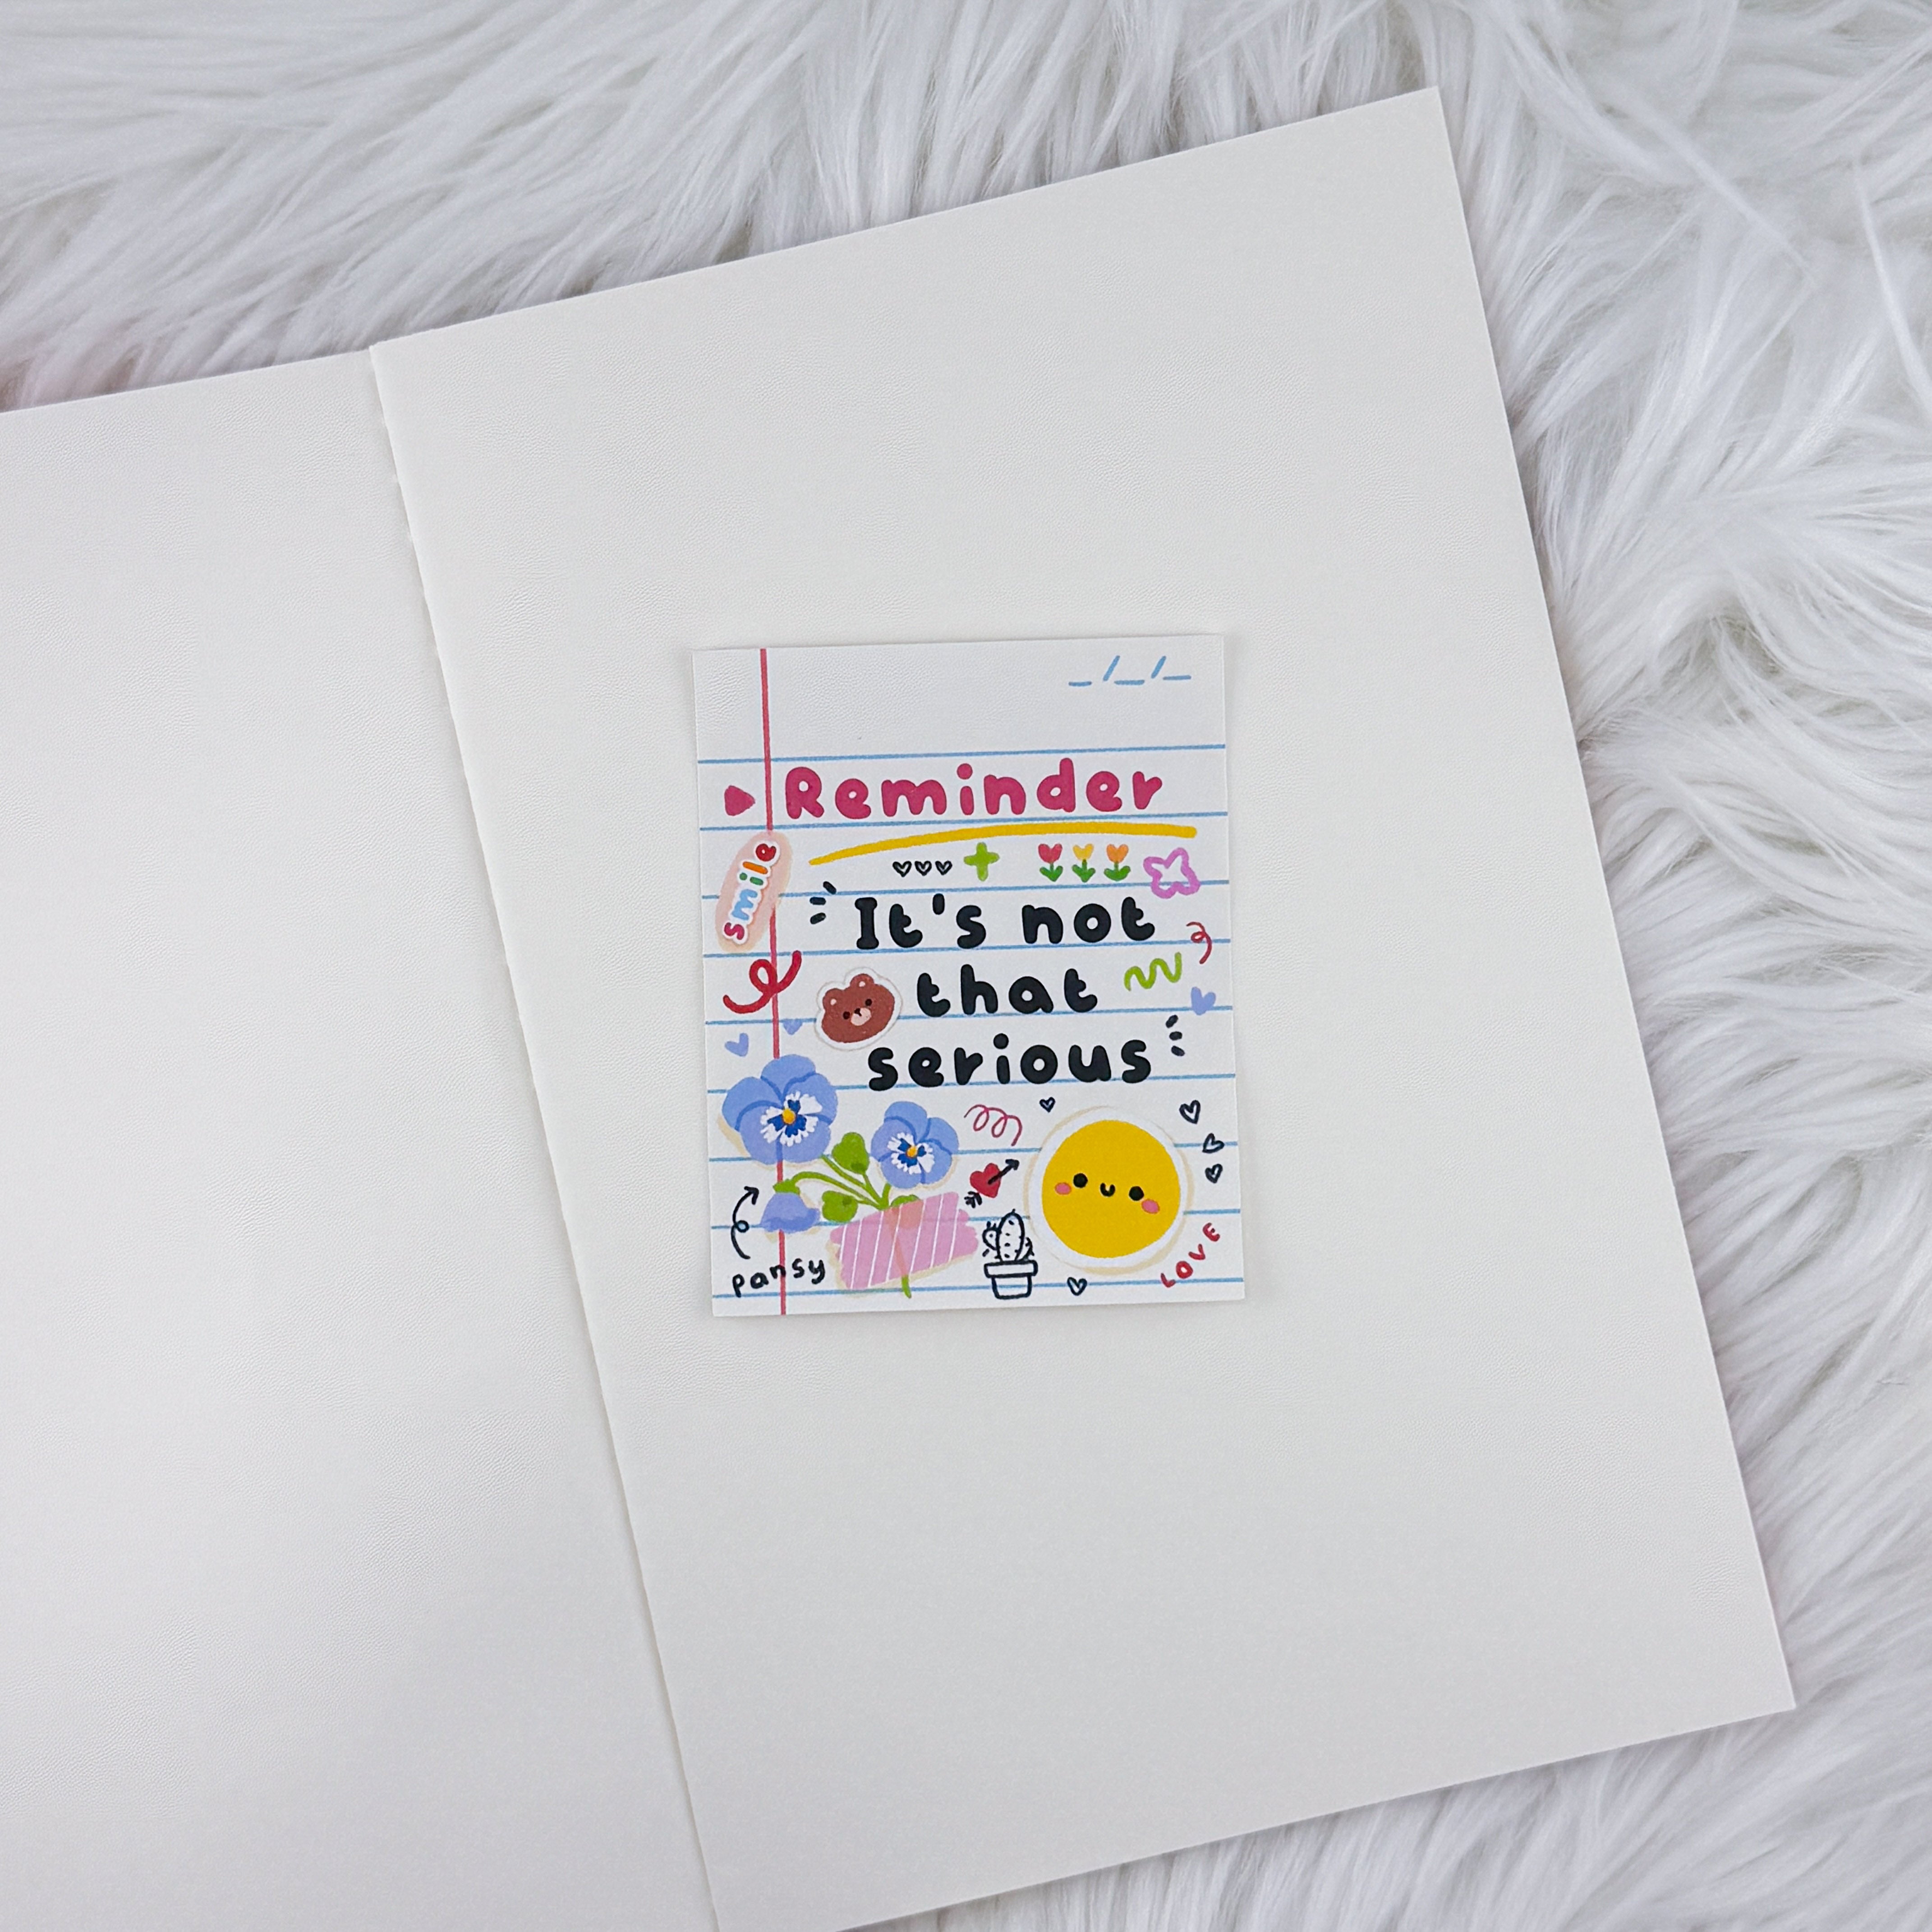 _/_/_
Reminder
smile
It's not
that
serious
pansy
LOVE